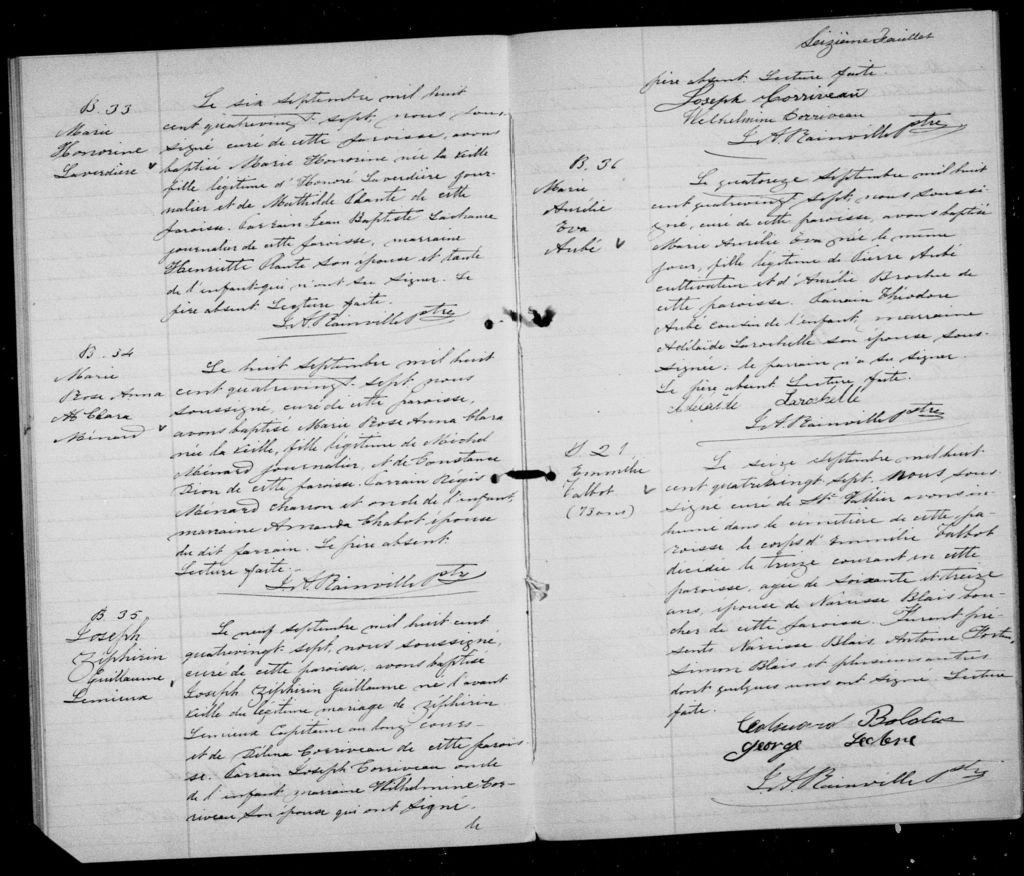 B. 33
Marie
Honorine
Laverdière
Le six septembre mil huit
cent quatrevingt sept, nous sous
signé curé de cette paroisse, avons
baptisé Marie Honorine née la veille
fille légitime d'Honoré Laverdière jour-
nalier et de Mathilde Plante de cette
paroisse. Parrain Jean Baptiste
journalier de cette paroisse, marraine
Henriette Plante son épouse et tante
de l'enfant qui n'ont su signer. Le
père absent Lecture faite.
J. A. Rainville ptre
B. 34
Marie
Rose Anna
Clara
Ménard
Le huit septembre mil huit
cent quatrevingt sept, nous
soussigné, curé de cette paroisse,
avons baptisé Marie Rose Anna Clara
née la veille, fille légitime de Michel
Ménard journalier, et de Constance
Dion de cette paroisse. Parrain Régis
Ménard charron et oncle de l'enfant,
marraine Amanda Chabot épouse
du dit parrain. Le père absent.
Lecture faite.
J. A. Rainville ptre
B. 35
Joseph
Ziphirin
Guillaume
Lemieux
Le neuf septembre mil huit cent
quatrevingt sept, nous soussigné,
curé de cette paroisse, avons baptisé
Joseph Ziphirin Guillaume né l'avant
veille du légitime mariage de Ziphirin
Lemieux Capitaine au long cours
et de Délina Corriveau de cette parois
se. Parrain Joseph Corriveau oncle
de l'enfant, marraine Wilhelmine Cor-
riveau son épouse qui ont signé.
le
Seizième Feuillet
père absent. Lecture faite
Joseph Corriveau
Wilhelmine Corriveau
J. A. Rainville ptre
B. 36
Marie
Aurélie
Eva
Aubé
Le quatorze septembre mil huit
cent quatrevingt sept, nous soussi
gné, curé de cette paroisse, avons baptisé
Marie Aurélie Eva née le même
jour, fille légitime de Pierre Aubé
cultivateur et d'Aurélie Brochu de
cette paroisse. Parrain Théodore
Aubé cousin de l'enfant, marraine
Adélaïde Larochelle son épouse sous-
signée; le parrain n'a su signer.
Le père absent Lecture faite.
Adélaïde Larochelle
J. A. Rainville ptre
S. 21
Emmélie
Talbot
(73 ans)
Le seize septembre mil huit
cent quatrevingt sept, nous sous
signé curé de St. Vallier avons in-
humé dans le cimetière de cette pa-
roisse le corps d'Emmélie Talbot
décédée le treize courant en cette
paroisse, agée de soixante et treize
ans, épouse de Narcisse Blais bou-
cher de cette paroisse. Furent pré-
sents Narcisse Blais Antoine
Simon Blais et plusieurs autres
dont quelques uns ont signé. Lecture
faite.
Edouard Bolduc
George
J. A. Rainville ptre